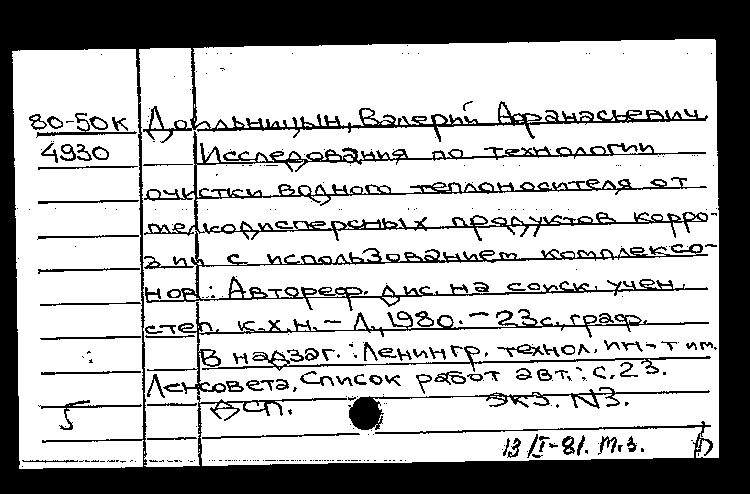 80-50к Доильницын, Валерий Афанасьевич
4930 Исследования по технологии
очистки водного теплоносителя от
мелкодисперсных продуктов корро-
зии с использованием комплексо-
нов: Автореф. дис. на соиск. учен.
степ. к.х.н. – Л., 1980. – 23 с., граф.
В надзаг.: Ленингр. технол. ин-т им.
Ленсовета. Список работ авт.: с. 23.
5 ДСП. Экз. N3.
13/I-81. М.З.